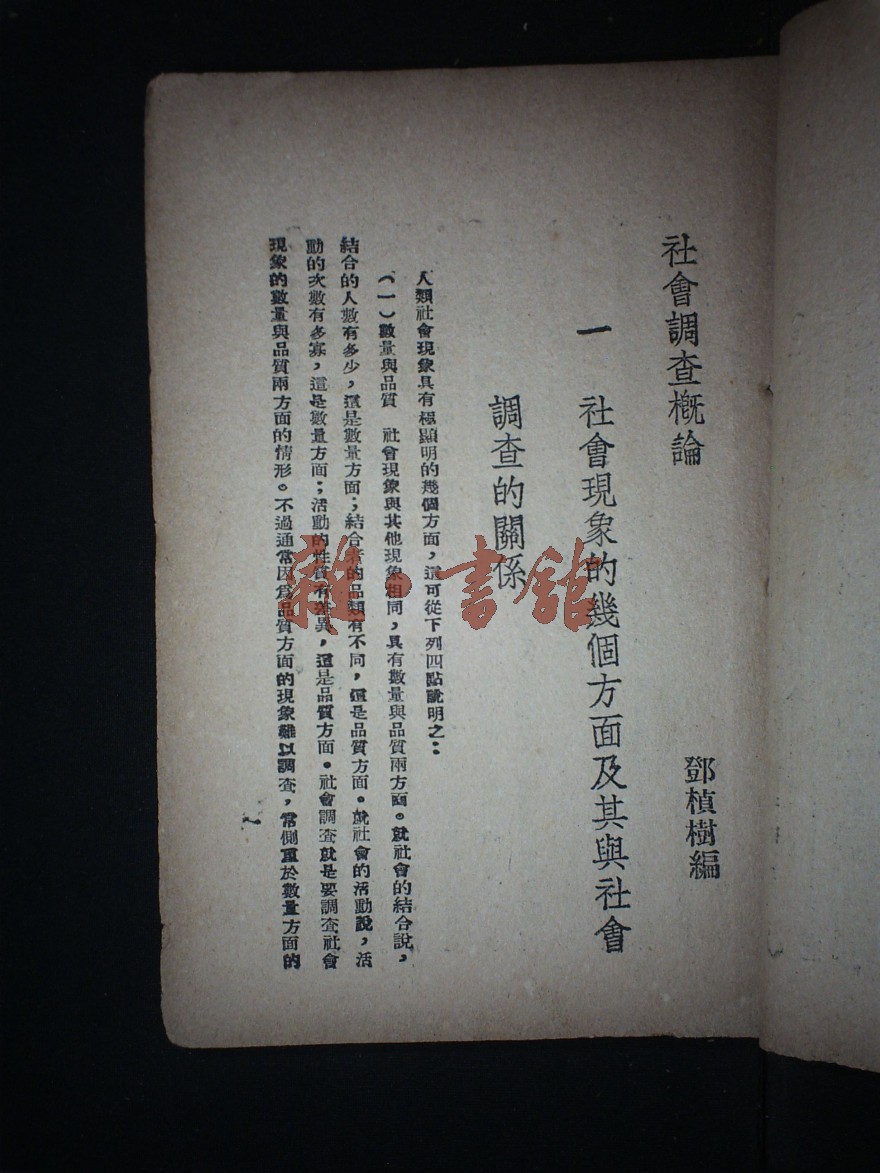 社會調查概論
鄧楨樹編
一 社會現象的幾個方面及其與社會
調查的關係
人類社會現象具有極顯明的幾個方面,這可從下列四點說明之:
(一)數量與品質 社會現象與其他現象相同,具有數量與品質兩方面。就社會的結合說,
結合的人數有多少,這是數量方面;結合者的品類有不同,這是品質方面。就社會的活動說,活
動的次數有多寡,這是數量方面;活動的性質有差異,這是品質方面。社會調查就是要調查社會
現象的數量與品質兩方面的情形。不過通常因爲品質方面的現象難以調查,常側重於數量方面的
雜·書館